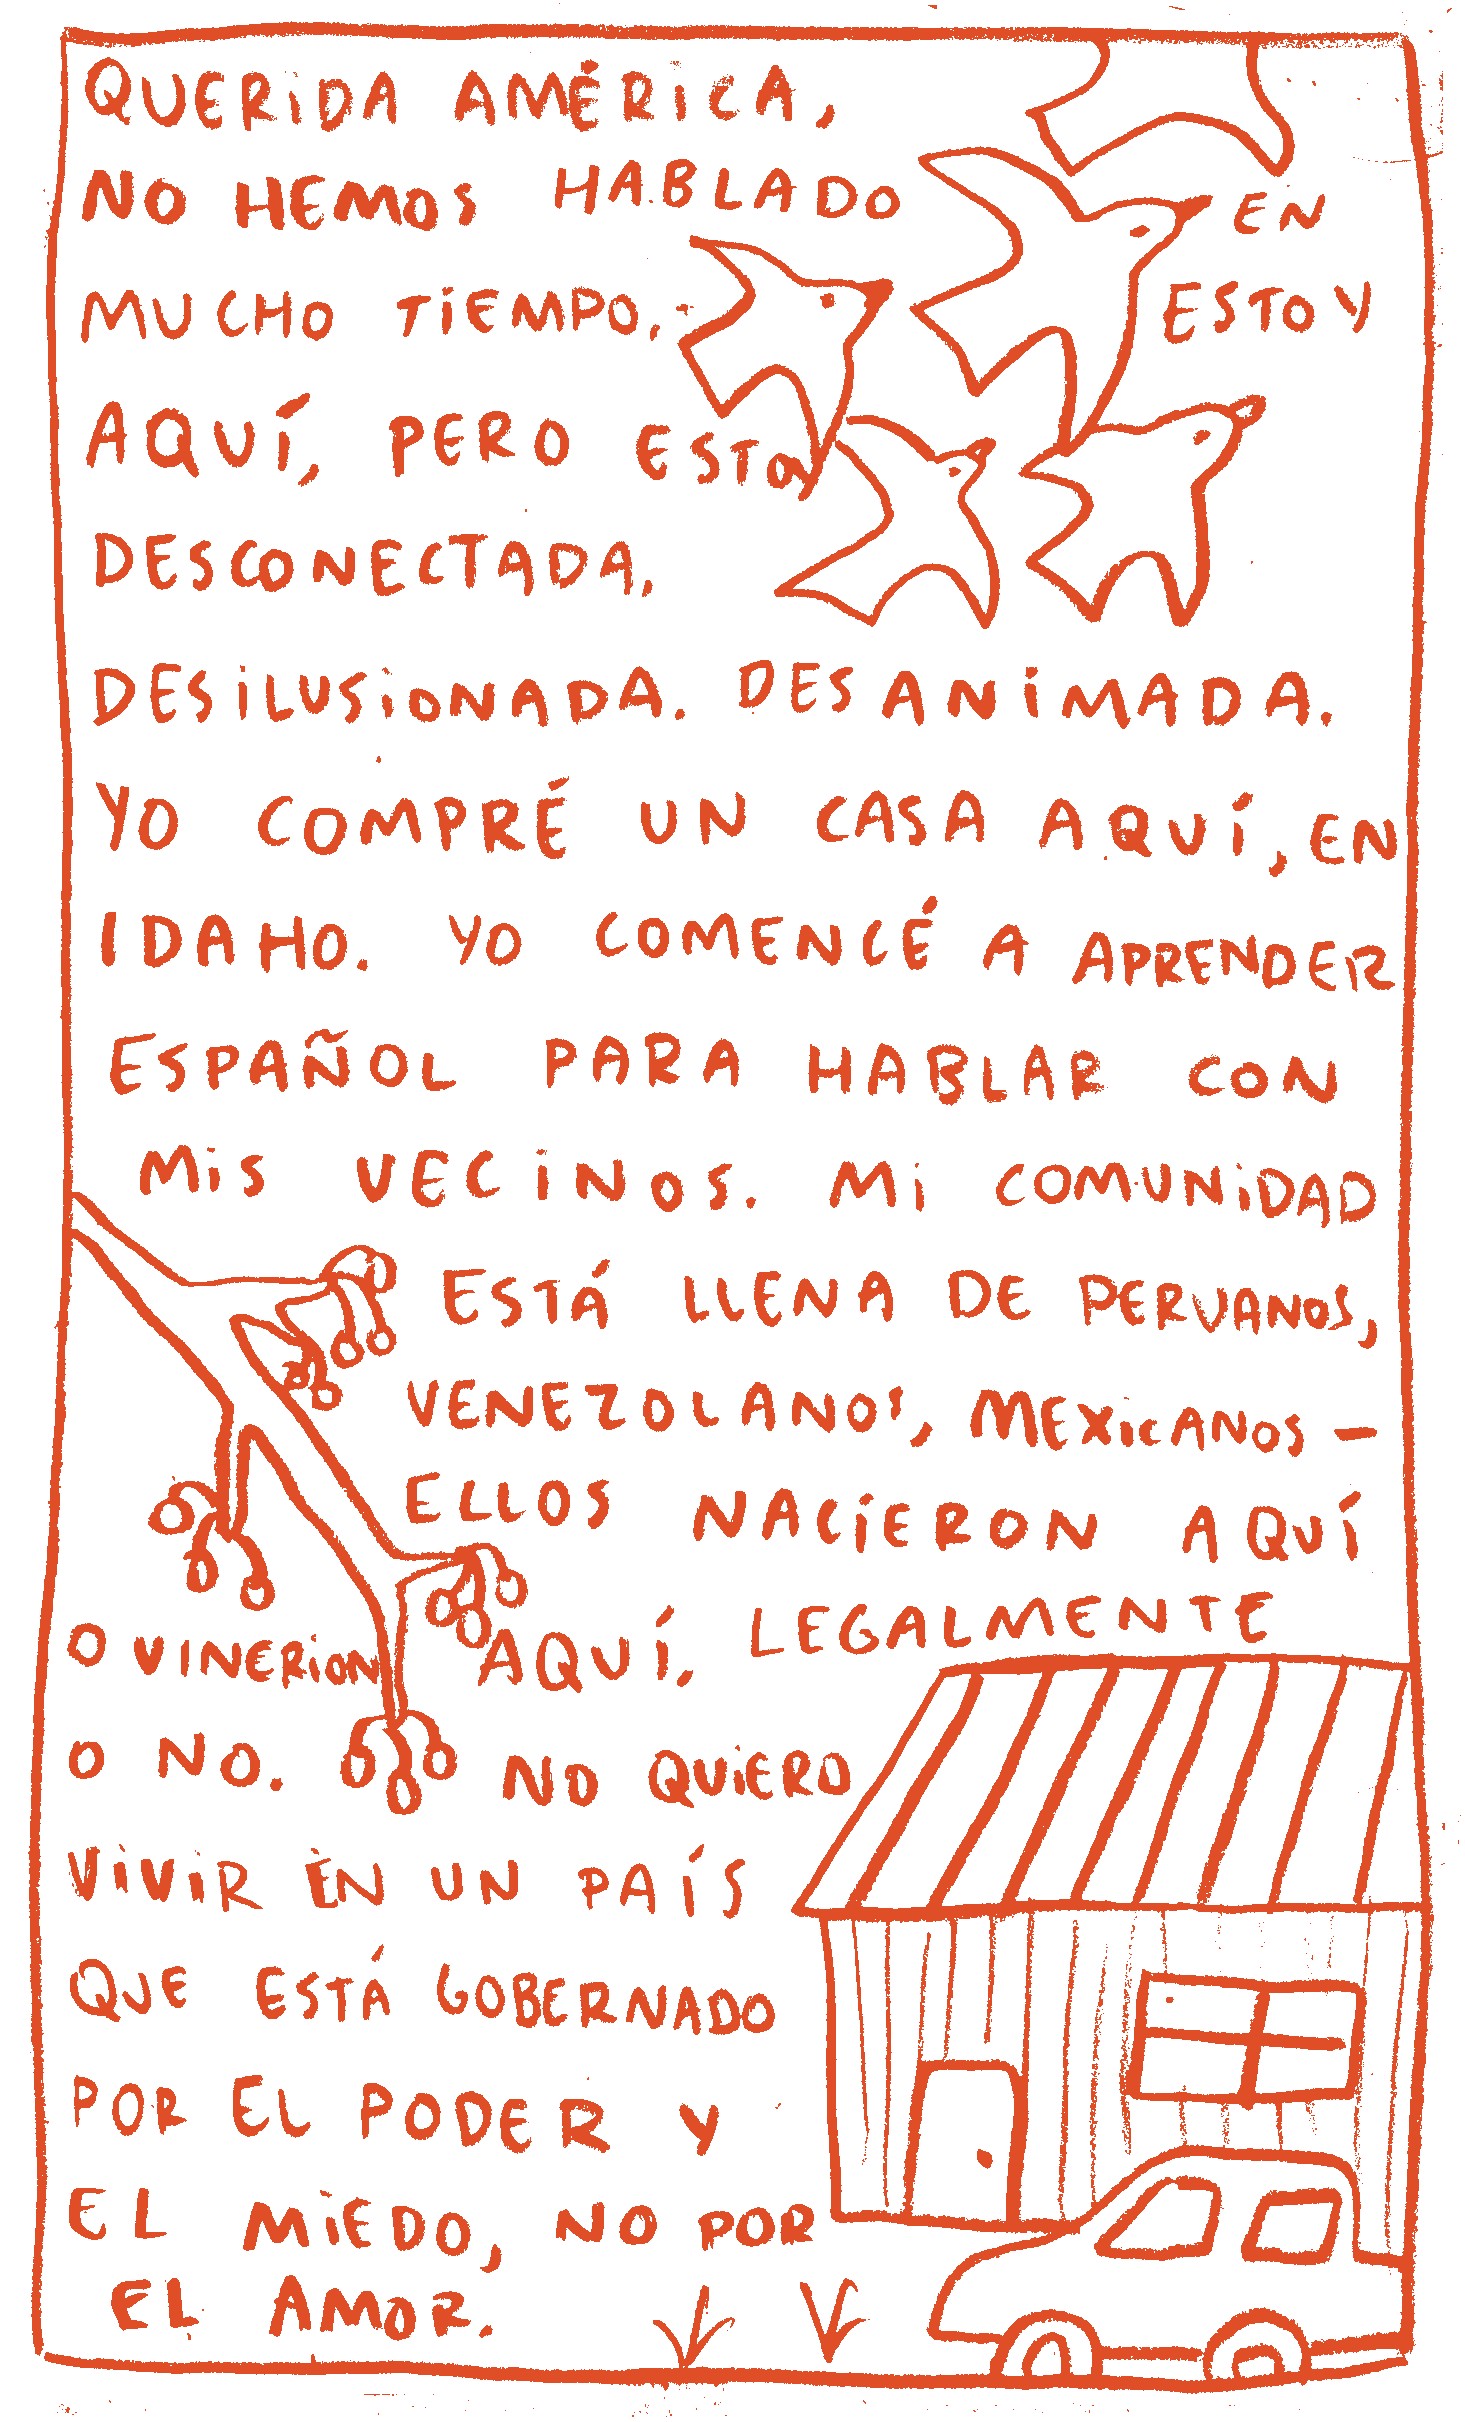 QUERiDA AMÉRiCA,
NO HEMOS HABLADO EN
MUCHO TiEMPO. ESTOY
AQUÍ, PERO ESTOY
DESCONECTADA.
DESiLUSiONADA. DESANiMADA.
YO COMPRÉ UN CASA AQUÍ, EN
IDAHO. YO COMENCÉ A APRENDER
ESPAÑOL PARA HABLAR CON
MiS VECiNOS. Mi COMUNiDAD
ESTÁ LLENA DE PERUANOS,
VENEZOLANOS, MEXiCANOS –
ELLOS NACiERON AQUÍ
O VINERiON AQUÍ, LEGALMENTE
O NO. NO QUiERO
ViViR EN UN PAÍS
QUE ESTÁ GOBERNADO
POR EL PODER Y
EL MiEDO, NO POR
EL AMOR.